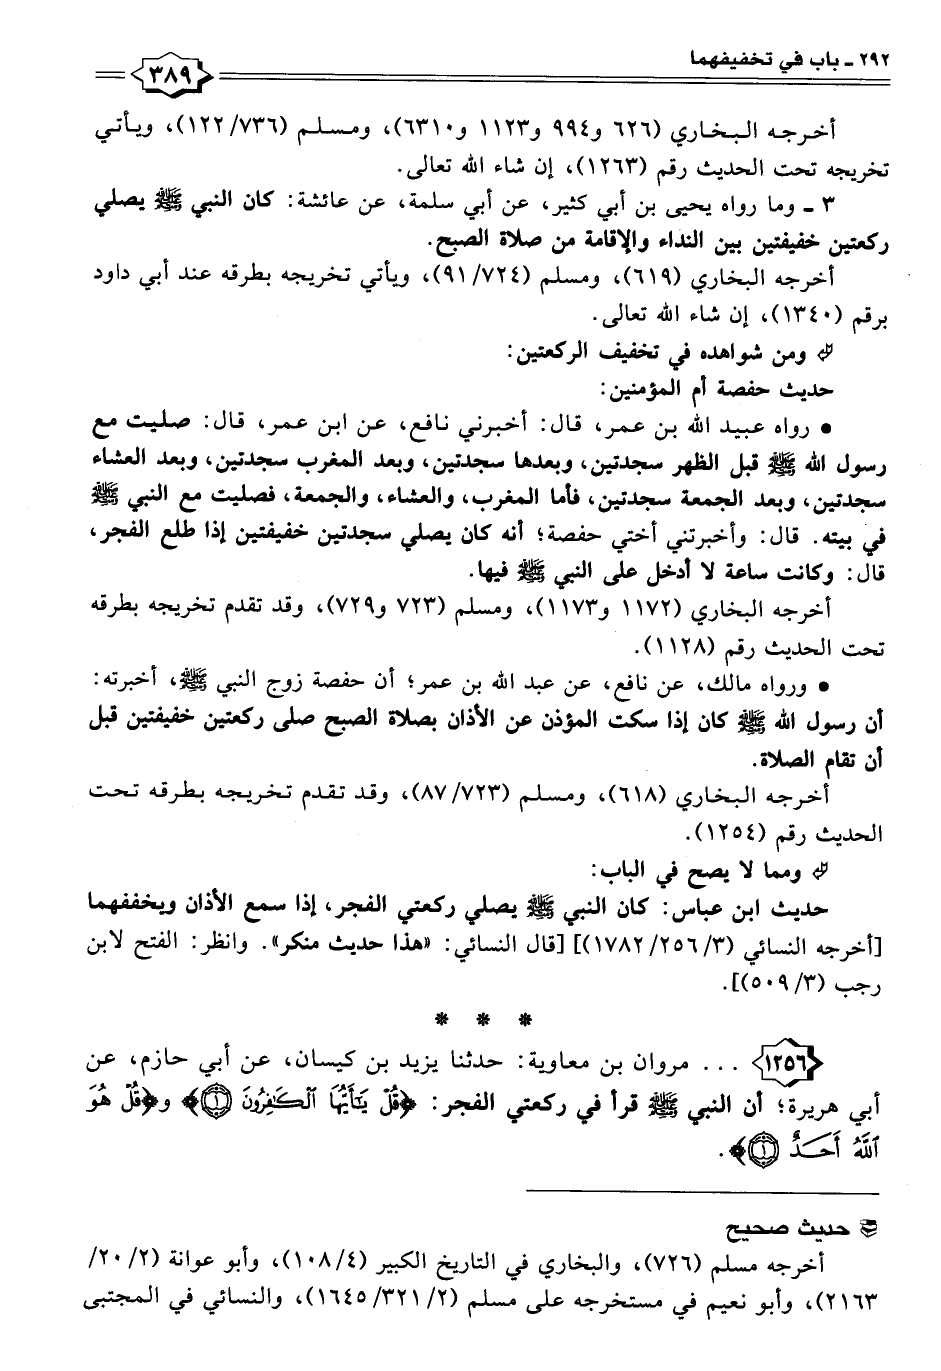 ٢٩٢ ـ باب في تخفيفهما
٣٨٩
أخرجه البخاري (٦٢٦ و٩٩٤ و١١٢٣ و٦٣١٠)، ومسلم (١٢٢/٧٣٦)، ويأتي
تخريجه تحت الحديث رقم (١٢٦٣)، إن شاء الله تعالى.
٣ ـ وما رواه يحيى بن أبي كثير، عن أبي سلمة، عن عائشة: كان النبي ﷺ يصلي
ركعتين خفيفتين بين النداء والإقامة من صلاة الصبح.
أخرجه البخاري (٦١٩)، ومسلم (٩١/٧٢٤)، ويأتي تخريجه بطرقه عند أبي داود
برقم (١٣٤٠)، إن شاء الله تعالى.
ومن شواهده في تخفيف الركعتين:
حديث حفصة أم المؤمنين:
• رواه عبيد الله بن عمر، قال: أخبرني نافع، عن ابن عمر، قال: صليت مع
رسول الله ﷺ قبل الظهر سجدتين، وبعدها سجدتين، وبعد المغرب سجدتين، وبعد العشاء
سجدتين، وبعد الجمعة سجدتين، فأما المغرب، والعشاء، والجمعة، فصليت مع النبي ﷺ
في بيته. قال: وأخبرتني أختي حفصة؛ أنه كان يصلي سجدتين خفيفتين إذا طلع الفجر،
قال: وكانت ساعة لا أدخل على النبي ﷺ فيها.
أخرجه البخاري (١١٧٢ و١١٧٣)، ومسلم (٧٢٣ و٧٢٩)، وقد تقدم تخريجه بطرقه
تحت الحديث رقم (١١٢٨).
• ورواه مالك، عن نافع، عن عبد الله بن عمر؛ أن حفصة زوج النبي ﷺ، أخبرته:
أن رسول الله ﷺ كان إذا سكت المؤذن عن الأذان بصلاة الصبح صلى ركعتين خفيفتين قبل
أن تقام الصلاة.
أخرجه البخاري (٦١٨)، ومسلم (٨٧/٧٢٣)، وقد تقدم تخريجه بطرقه تحت
الحديث رقم (١٢٥٤).
ومما لا يصح في الباب:
حديث ابن عباس: كان النبي ﷺ يصلي ركعتي الفجر، إذا سمع الأذان ويخففهما
[أخرجه النسائي (١٧٨٢/٢٥٦/٣)] [قال النسائي: «هذا حديث منكر». وانظر: الفتح لابن
رجب (٥٠٩/٣)].
* * *
١٢٥٦ ... مروان بن معاوية: حدثنا يزيد بن كيسان، عن أبي حازم، عن
أبي هريرة؛ أن النبي ﷺ قرأ في ركعتي الفجر: ﴿قُلْ يَٰٓأَيُّهَا ٱلْكَٰفِرُونَ ١﴾ و﴿قُلْ هُوَ
ٱللَّهُ أَحَدٌ ١﴾.
حديث صحيح
أخرجه مسلم (٧٢٦)، والبخاري في التاريخ الكبير (١٠٨/٤)، وأبو عوانة (٢٠/٢/
٢١٦٣)، وأبو نعيم في مستخرجه على مسلم (١٦٤٥/٣٢١/٢)، والنسائي في المجتبى